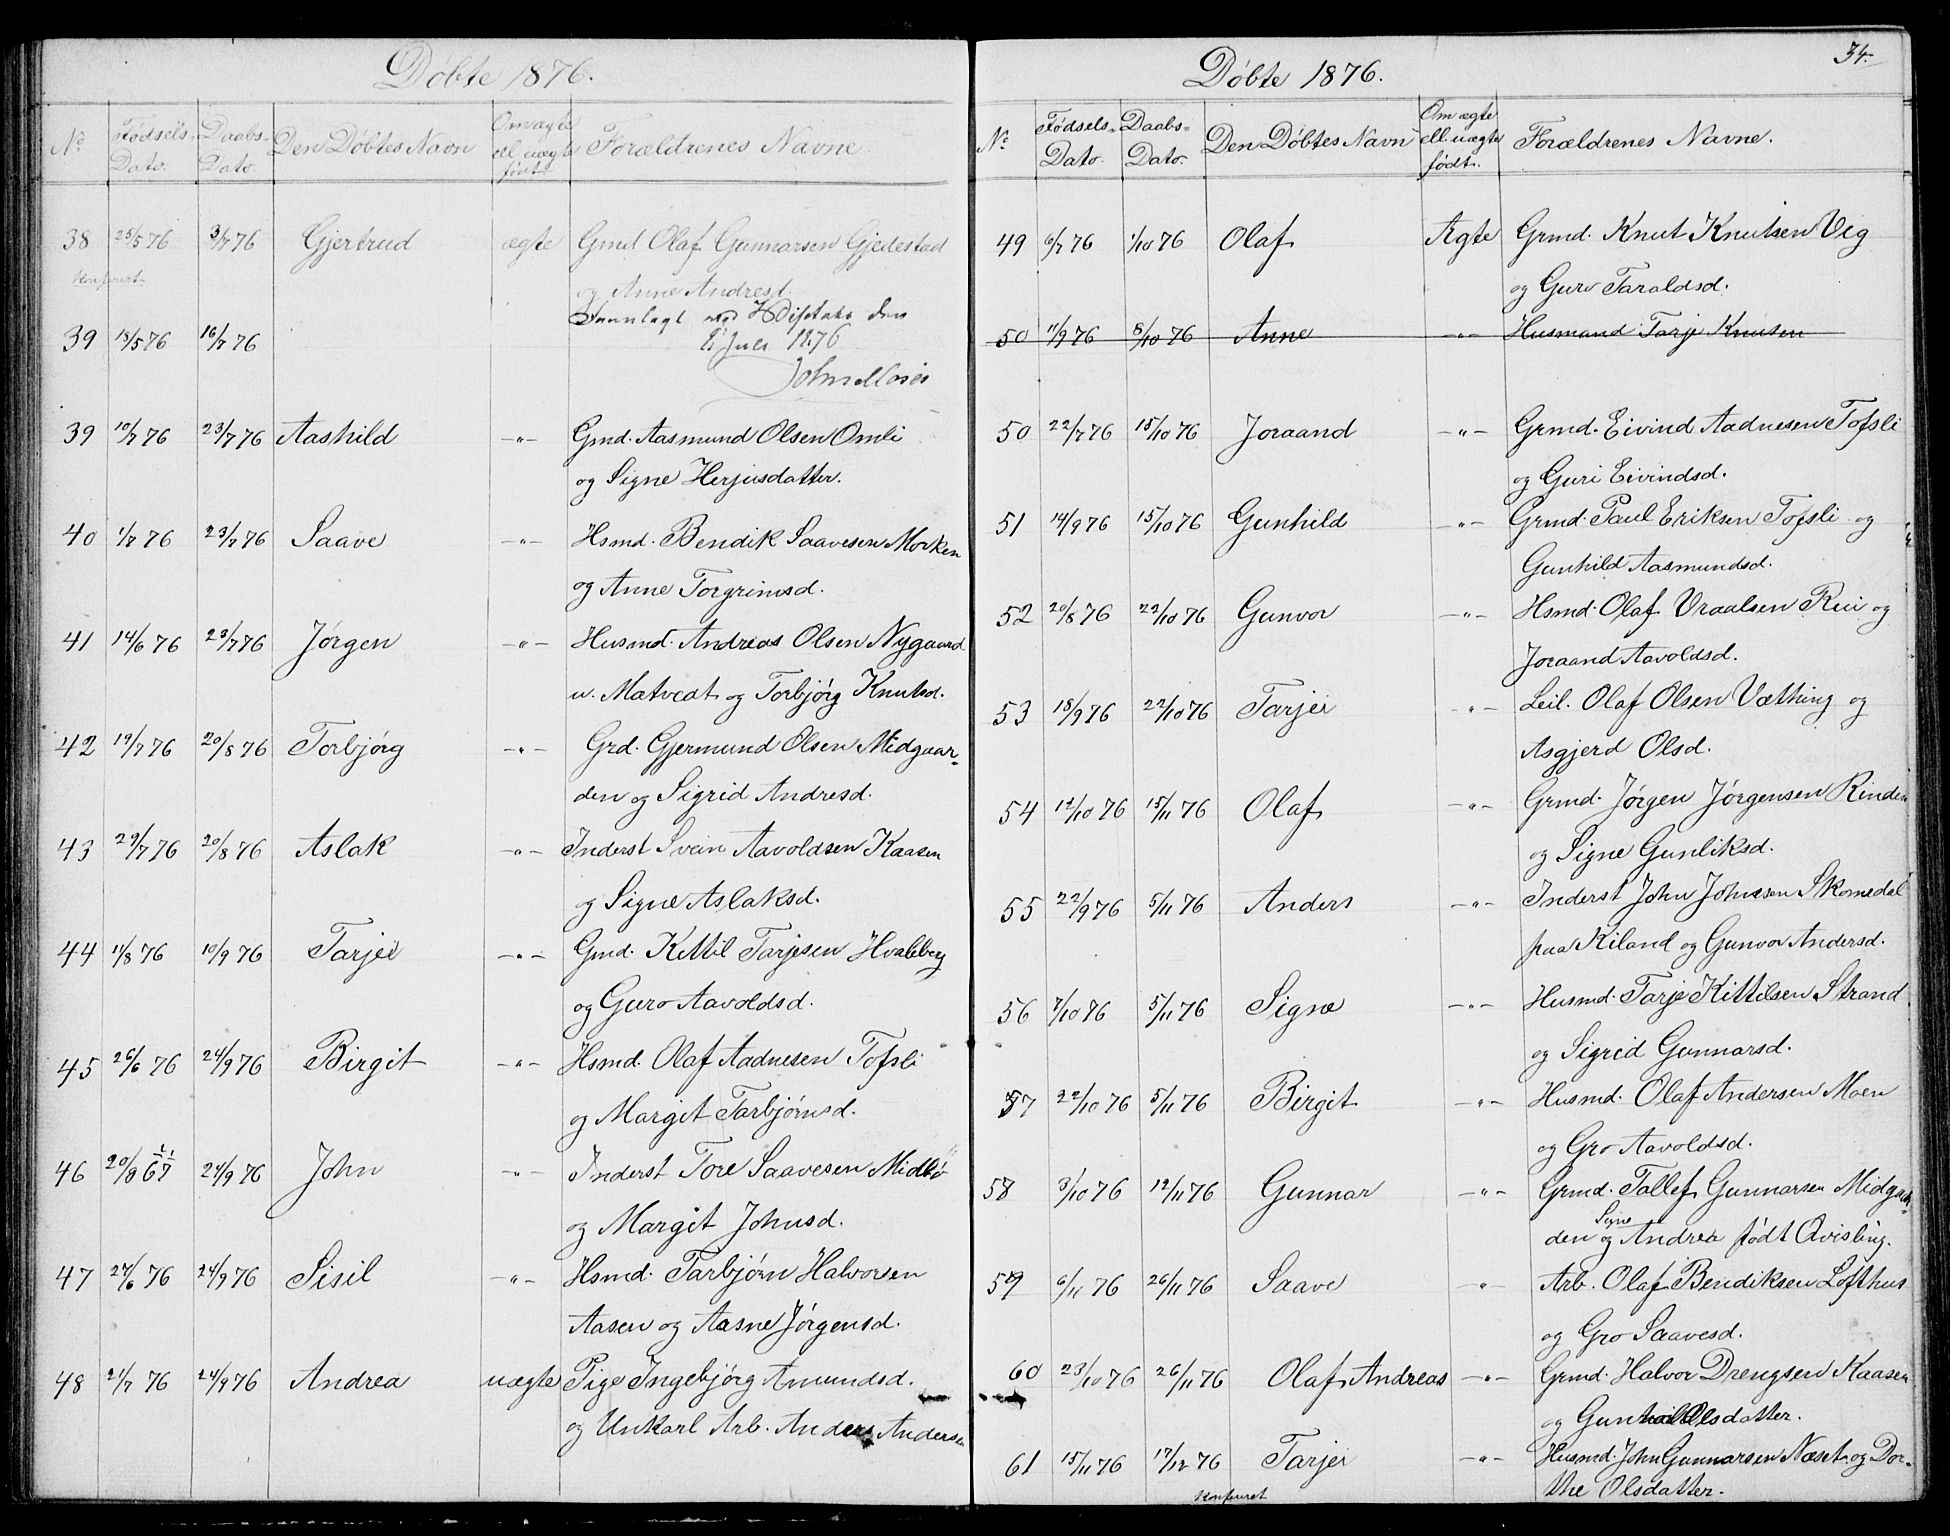 Døbte 1876.
No Fødsels- Dato. Daabs- Dato. Den Døbtes Navn Om ægte ell. uægte født. Forældrenes Navne.
38 25/5 76 3/7 76 Gjertrud ægte Gmd Olaf Gunnarsen Gjedestad
Konfereret og Anne Andresd.
Fremlagt ved den
39 15/5 76 16/7 76 Juli 1876
39 10/7 76 23/7 76 Aashild -"- Gmd. Aasmund Olsen Omli
og Signe Herjusdatter.
40 1/7 76 23/7 76 Saave -"- Hsmd. Bendik Saavesen Morken
og Anne Torgrimsd.
41 14/6 76 23/7 76 Jørgen -"- Husmd. Andreas Olsen Nygaard
u. Matvedt og Torbjørg Knutsd.
42 19/7 76 20/8 76 Torbjørg -"- Grd. Gjermund Olsen Midgaar-
den og Sigrid Andresd.
43 29/7 76 20/8 76 Aslak -"- Inderst Svein Aavoldsen Kaasen
og Signe Aslaksd.
44 11/8 76 10/9 76 Tarjei -"- Gmd. Kittil Tarjesen Hvaleberg
og Guro Aavoldsd.
45 26/6 76 24/9 76 Birgit -"- Hsmd. Olaf Aadnesen Tofsli
og Margit Tarbjørnsd.
46 20/8 67 24/9 76 John -"- Inderst Tore Saavesen Midbø
og Margit Johnsd.
47 27/6 76 24/9 76 Sisil -"- Hsmd. Tarbjørn Halvorsen
Aasen og Aasne Jørgensd.
48 21/7 76 24/9 76 Andrea uægte Pige Ingebjørg Amundsd.
og Unkarl Arb. Anders Andersen
34.
Døbte 1876.
No Fødsels- Dato. Daabs- Dato. Den Døbtes Navn Om ægte ell. uægte født. Forældrenes Navne.
49 6/7 76 1/10 76 Olaf Ægte Grmd. Knut Knutsen Vig
og Guro Taraldsd.
50 11/9 76 8/10 76 Anne -"- Husmand Tarje Knutsen
50 22/7 76 15/10 76 Joraand -"- Grmd. Eivind Aadnesen Tofsli
og Guri Eivindsd.
51 14/9 76 15/10 76 Gunhild -"- Grmd. Paul Eriksen Tofsli og
Gunhild Aasmundsd.
52 20/8 76 22/10 76 Gunvor -"- Hsmd. Olaf Vraalsen Rui og
Joraand Aavoldsd.
53 18/9 76 22/10 76 Tarjei -"- Leil. Olaf Olsen Vætting og
Asgjerd Olsd.
54 12/10 76 15/11 76 Olaf -"- Grmd. Jørgen Jørgensen Rinden
og Signe Gunliksd.
55 22/9 76 5/11 76 Anders -"- Inderst John Johnsen Skomedal
paa Kiland og Gunvor Andersd.
56 7/10 76 5/11 76 Signe -"- Husmd. Tarje Kittilsen Strand
og Sigrid Gunnarsd.
57 22/10 76 5/11 76 Birgit -"- Husmd. Olaf Andersen Moen
og Gro Aavoldsd.
58 3/10 76 12/11 76 Gunnar -"- Grmd. Tallef Gunnarsen Midgaar-
Signe
den og Andrea født Qvisling.
59 6/11 76 26/11 76 Saave -"- Arb. Olaf Bendiksen Lofthus
og Gro Saavesd.
60 23/10 76 26/11 76 Olaf Andreas -"- Grmd. Halvor Drengsen Kaasen
og Gunhild Olsdatter.
61 15/11 76 17/12 76 Tarjei -"- Husmd. John Gunnarsen Næset og Dor-
Konfereret the Olsdatter.